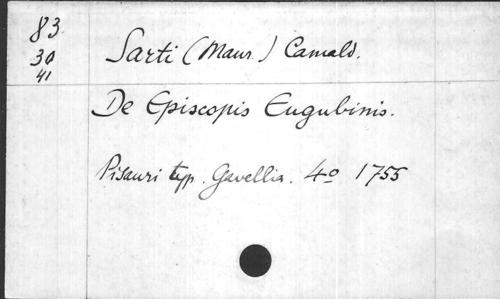 83
30
41
Sarti (Maur.) Camald.
De Episcopis Eugubinis.
Pisauri typ. Gavellia. 4o 1755